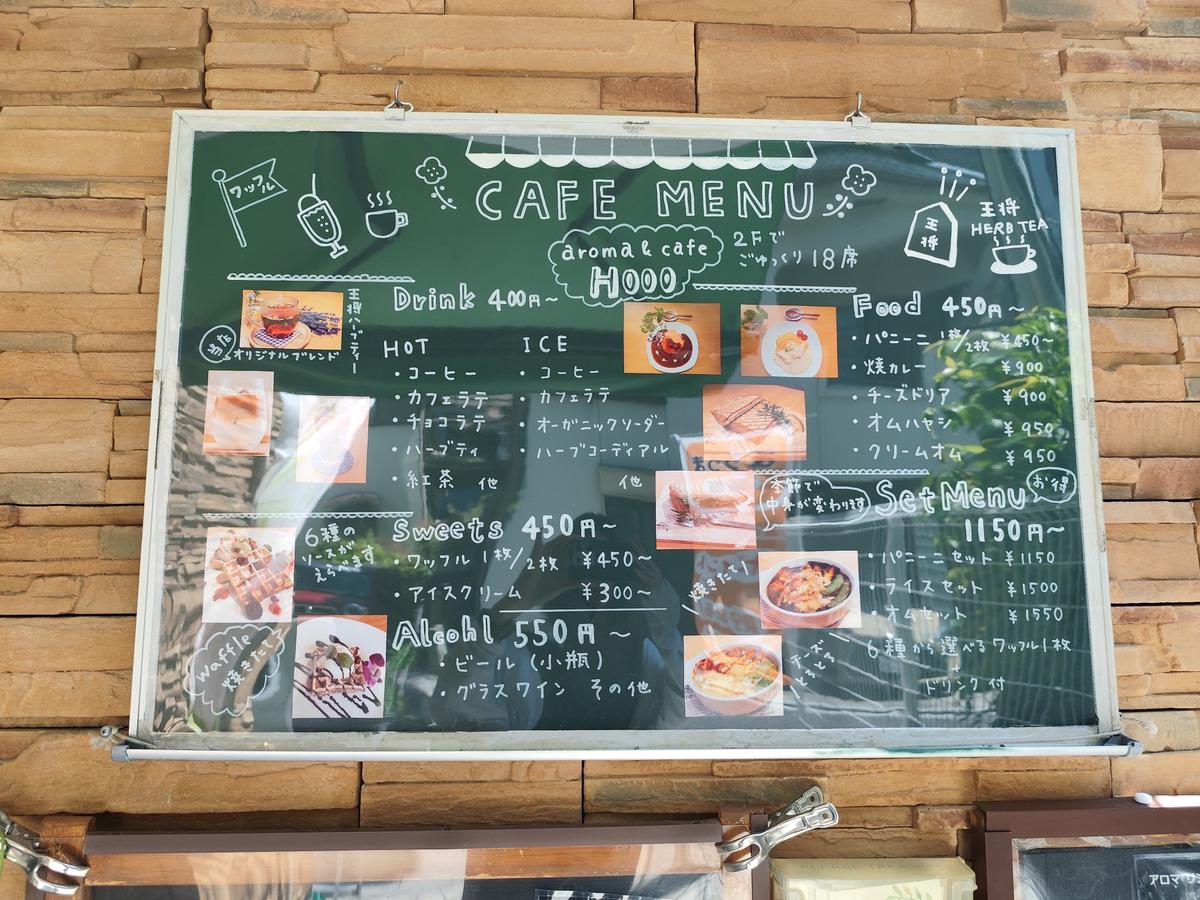 TRUSCO
ワッフル
CAFE MENU
aroma & cafe
HOOO
2Fで
ごゆっくり18席
王将
王将
HERB TEA
王将ハーブティー
当店
オリジナルブレンド
Drink 400円~
HOT
・コーヒー
・カフェラテ
・チョコラテ
・ハーブティ
・紅茶 他
ICE
・コーヒー
・カフェラテ
・オーガニックソーダー
・ハーブコーディアル
他
Food 450円~
・パニーニ 1枚/2枚 ¥450~
・焼カレー ¥900
・チーズドリア ¥900
・オムハヤシ ¥950
・クリームオム ¥950
6種の
ソースが
えらべます
Sweets 450円~
・ワッフル 1枚/2枚 ¥450~
・アイスクリーム ¥300~
Waffle
焼きたて
Alcohl 550円~
・ビール (小瓶)
・グラスワイン その他
季節で
中身が変わります
Set Menu
お得
1150円~
・パニーニセット ¥1150
・ライスセット ¥1500
・オムセット ¥1550
6種から選べるワッフル1枚
+
ドリンク付
焼きたて!
チーズ
アロマ